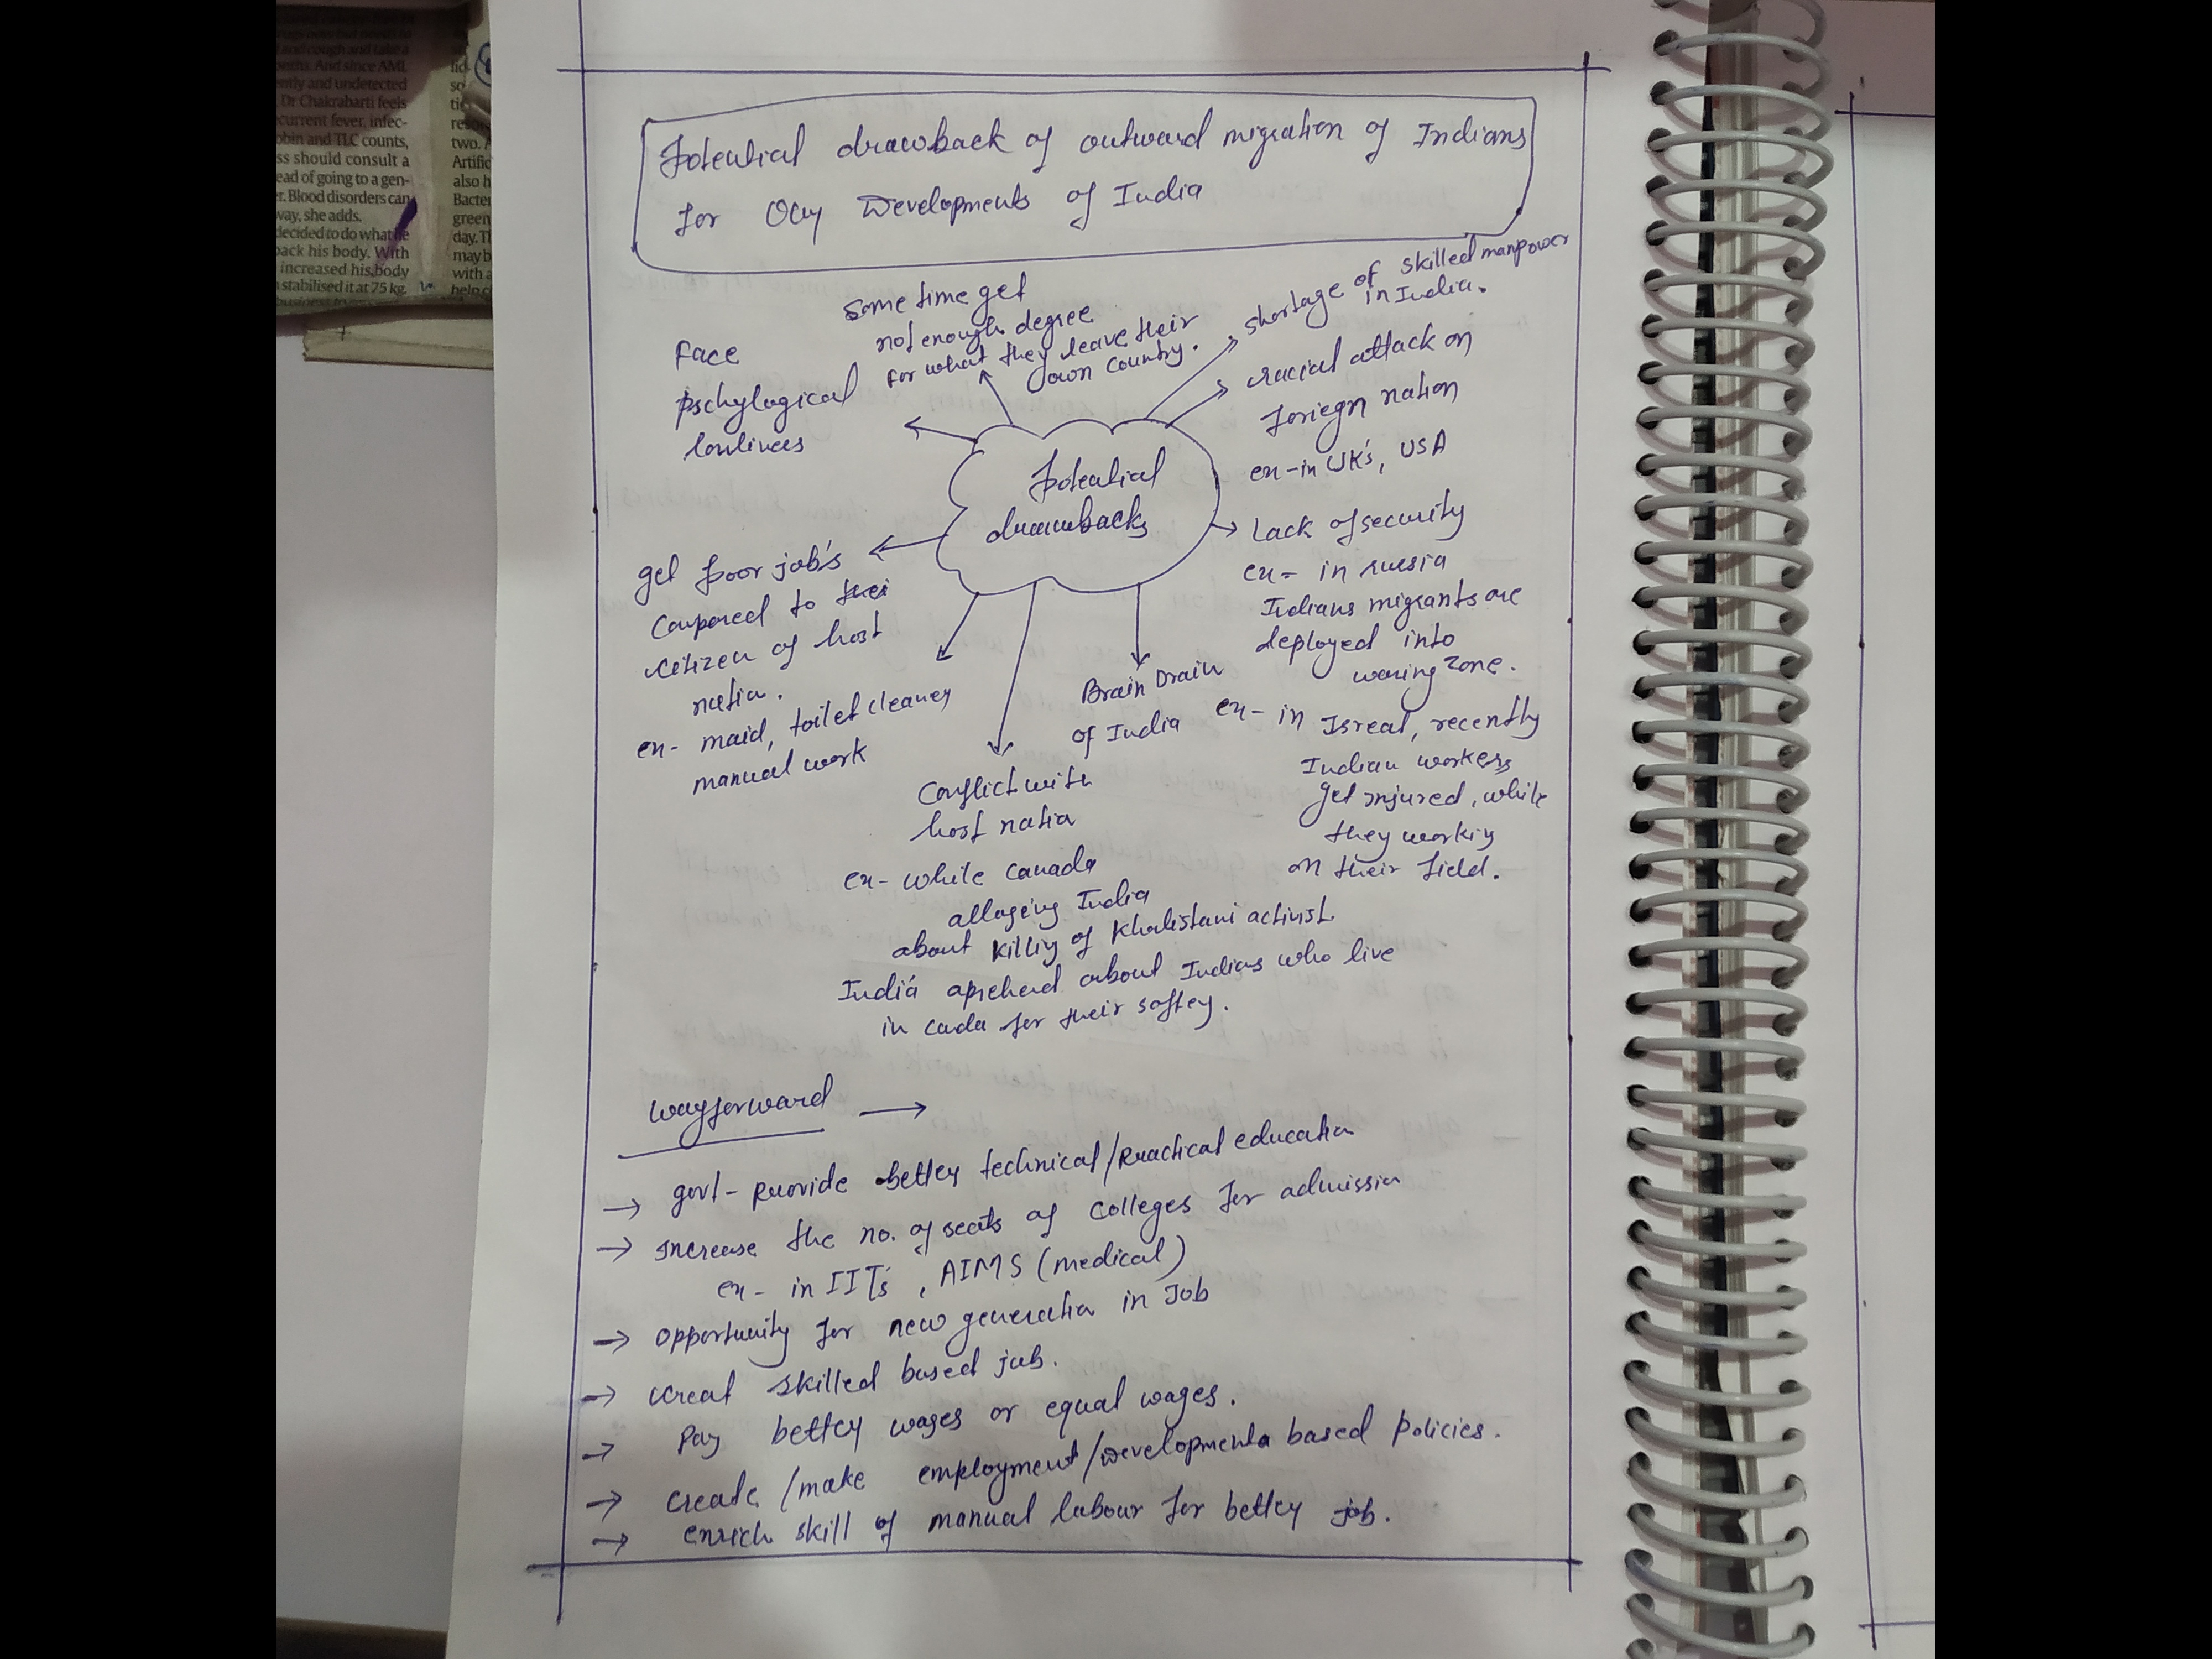 ently and undetected
Dr Chakrabarti feels
current fever, infec-
obin and TLC counts,
ss should consult a
ead of going to a gen-
r. Blood disorders can
way, she adds.
decided to do what he
back his body. With
increased his body
stabilised it at 75 kg.
two.
Artific
also h
Bacter
green
day. Tl
may b
with a
help c
Potential drawback of outward migration of Indians
for Developments of India
some time get
not enough degree
for what they leave their
own country.
shortage of skilled manpower
in India.
Face
pschylogical
lonlinees
racial attack on
foriegn nation
ex-in UK's, USA
Potential
drawbacks
Lack of security
ex- in russia
Indians migrants are
deployed into
waring zone.
ex- in Isreal, recently
Indian workers
get injured, while
they working
on their field.
get poor job's
compared to
citizen of host
nation.
ex- maid, toilet cleaner
manual work
Brain Drain
of India
Conflict with
host nation
ex- while Canada
allageing India
about killing of Khalistani activist
India aprehend about Indians who live
in cada for their saftey.
wayforward →
→ govt- provide better technical/practical education
→ increase the no. of seats of colleges for admission
ex- in IITs, AIMS (medical)
→ opportunity for new generation in Job
→ creat skilled based job.
→ Pay better wages or equal wages.
→ create/make employment/developmenta based policies.
→ enrich skill of manual labour for better job.